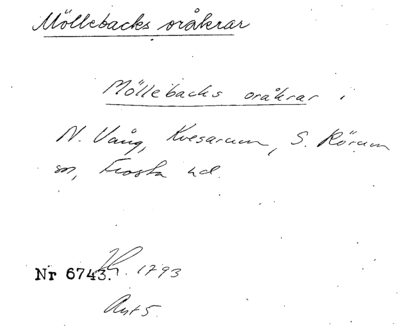 Möllebacks oråkrar
Möllebacks oråkrar i
N. Vång, Kvesarum, S. Rörum
sn, Frosta hd.
Nr 6743. 1793
Avt 5.